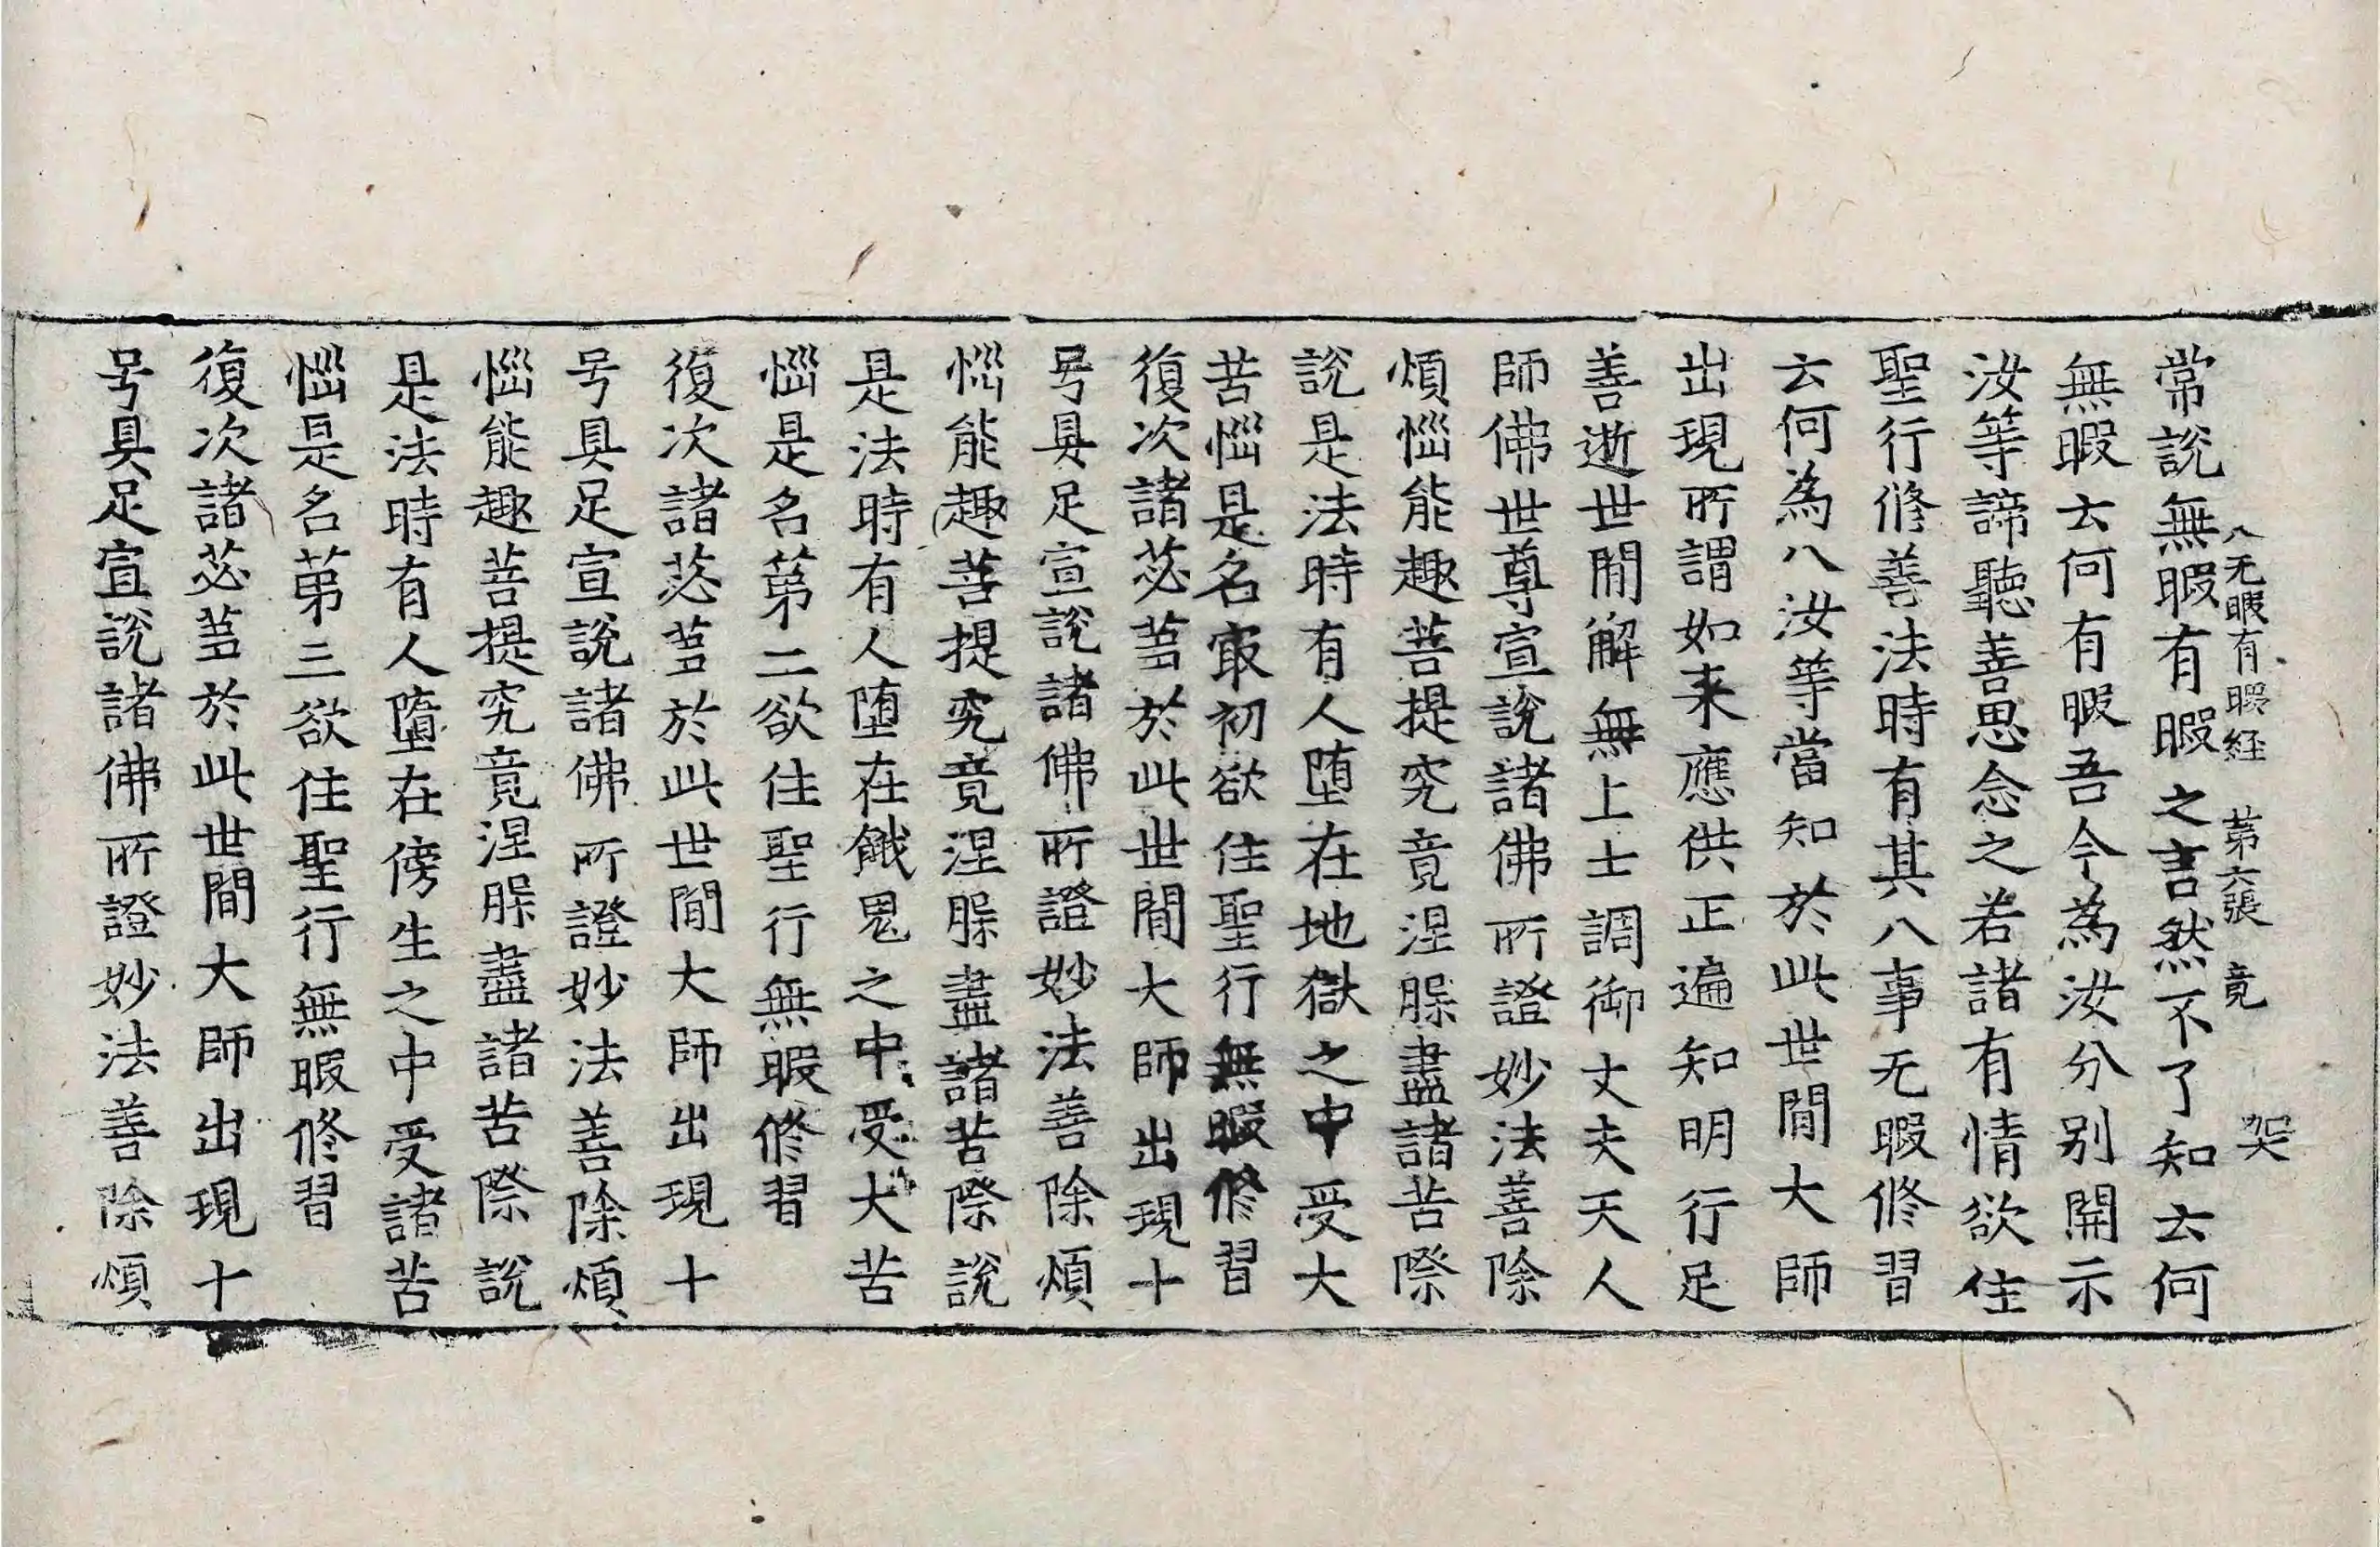 八无暇有暇経 第六張 竟 㚙
常說無暇有暇之言然不了知云何
無暇云何有暇吾今為汝分别開示
汝等諦聽善思念之若諸有情欲住
聖行修善法時有其八事无暇修習
云何為八汝等當知於此世閒大師
出現所謂如来應供正遍知明行足
善逝世閒解無上士調御丈夫天人
師佛世尊宣說諸佛所證妙法善除
煩惱能趣菩提究竟涅槃盡諸苦際
說是法時有人墮在地獄之中受大
苦惱是名㝡初欲住聖行無暇修習
復次諸苾蒭於此世閒大師出現十
号具足宣說諸佛所證妙法善除煩
惱能趣菩提究竟涅槃盡諸苦際說
是法時有人墮在餓鬼之中受大苦
惱是名第二欲住聖行無暇修習
復次諸苾蒭於此世閒大師出現十
号具足宣說諸佛所證妙法善除煩
惱能趣菩提究竟涅槃盡諸苦際說
是法時有人墮在傍生之中受諸苦
惱是名第三欲住聖行無暇修習
復次諸苾蒭於此世閒大師出現十
号具足宣說諸佛所證妙法善除煩